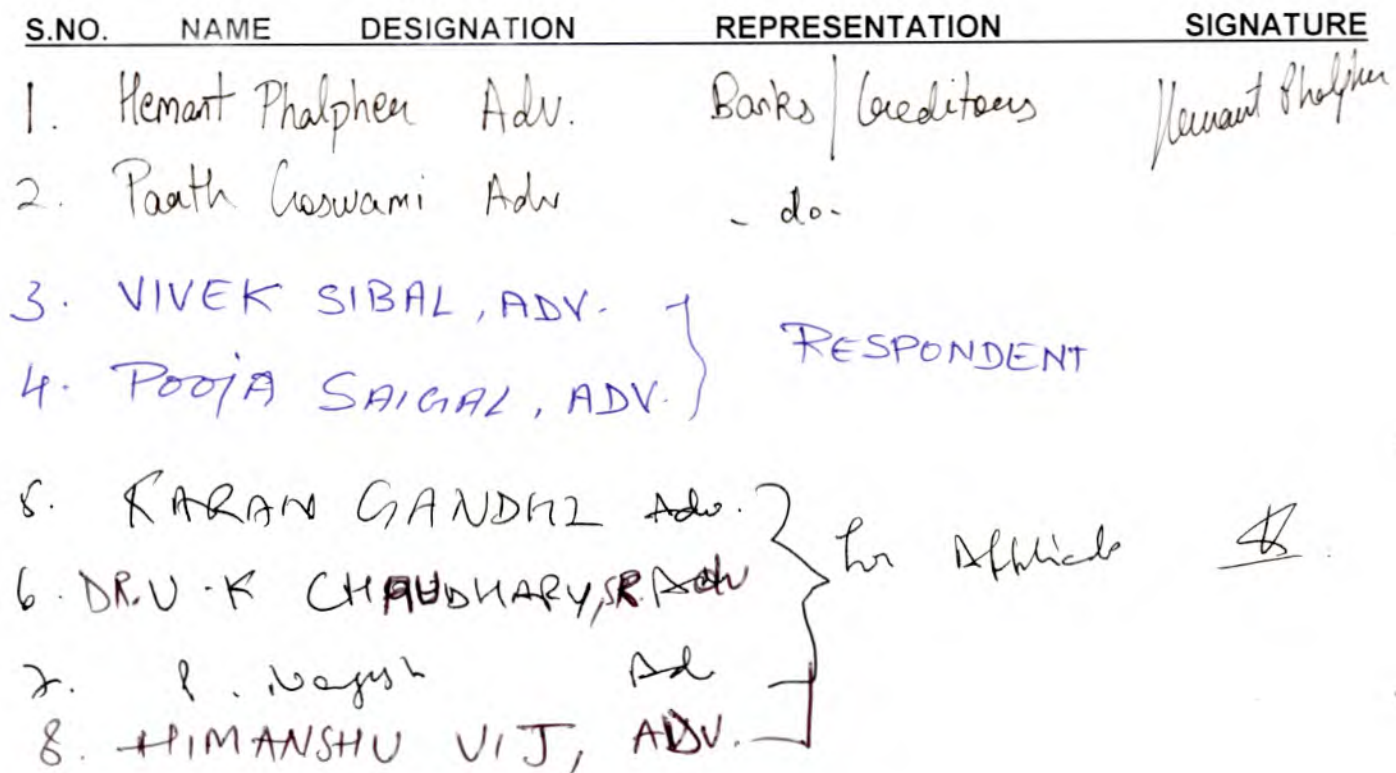 S.NO. NAME DESIGNATION REPRESENTATION SIGNATURE
1. Hemant Phalpher Adv. Banks/Creditors Hemant Phalpher
2. Paath Goswami Adv - do-
3. VIVEK SIBAL, ADV.
RESPONDENT
4. POOJA SAIGAL, ADV.
5. KARAN GANDHI Adv.
for
6. DR. U.K CHAUDHARY, SR. Adv
7. P. Nagesh Ad
8. HIMANSHU VIJ, ADV.